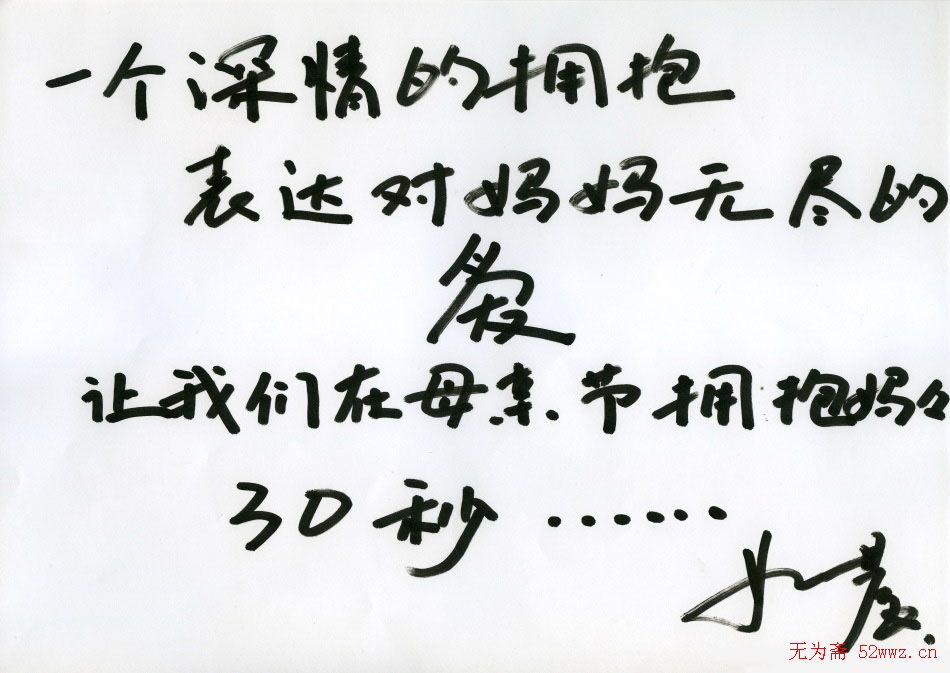 一个深情的拥抱
表达对妈妈无尽的
爱
让我们在母亲节拥抱妈々
30秒……
无为斋 52wwz.cn